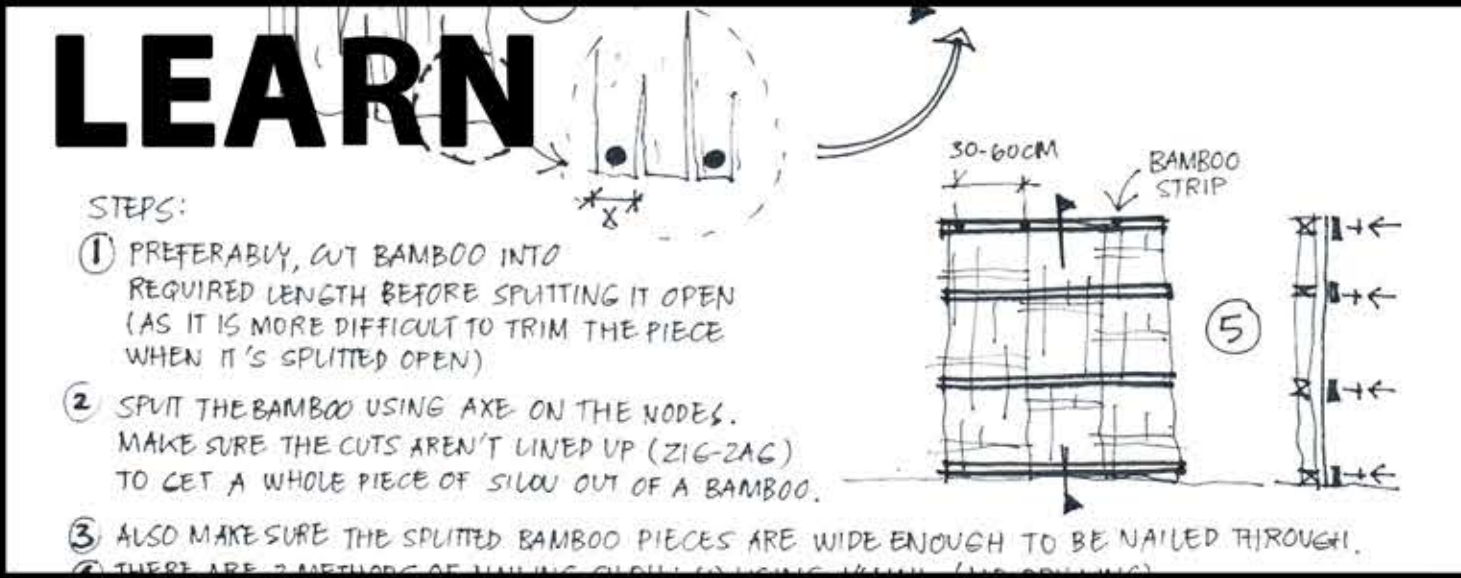 LEARN
X
30-60CM
BAMBOO
STRIP
STEPS:
① PREFERABLY, CUT BAMBOO INTO
REQUIRED LENGTH BEFORE SPLITTING IT OPEN
(AS IT IS MORE DIFFICULT TO TRIM THE PIECE
WHEN IT'S SPLITTED OPEN)
5
② SPLIT THE BAMBOO USING AXE ON THE NODES.
MAKE SURE THE CUTS AREN'T LINED UP (ZIG-ZAG)
TO GET A WHOLE PIECE OF SILOU OUT OF A BAMBOO.
③ ALSO MAKE SURE THE SPLITTED BAMBOO PIECES ARE WIDE ENOUGH TO BE NAILED THROUGH.
THERE ARE 2 METHODS OF NAILING